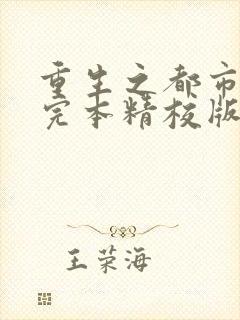 重生之都市
完本精校版
王荣海